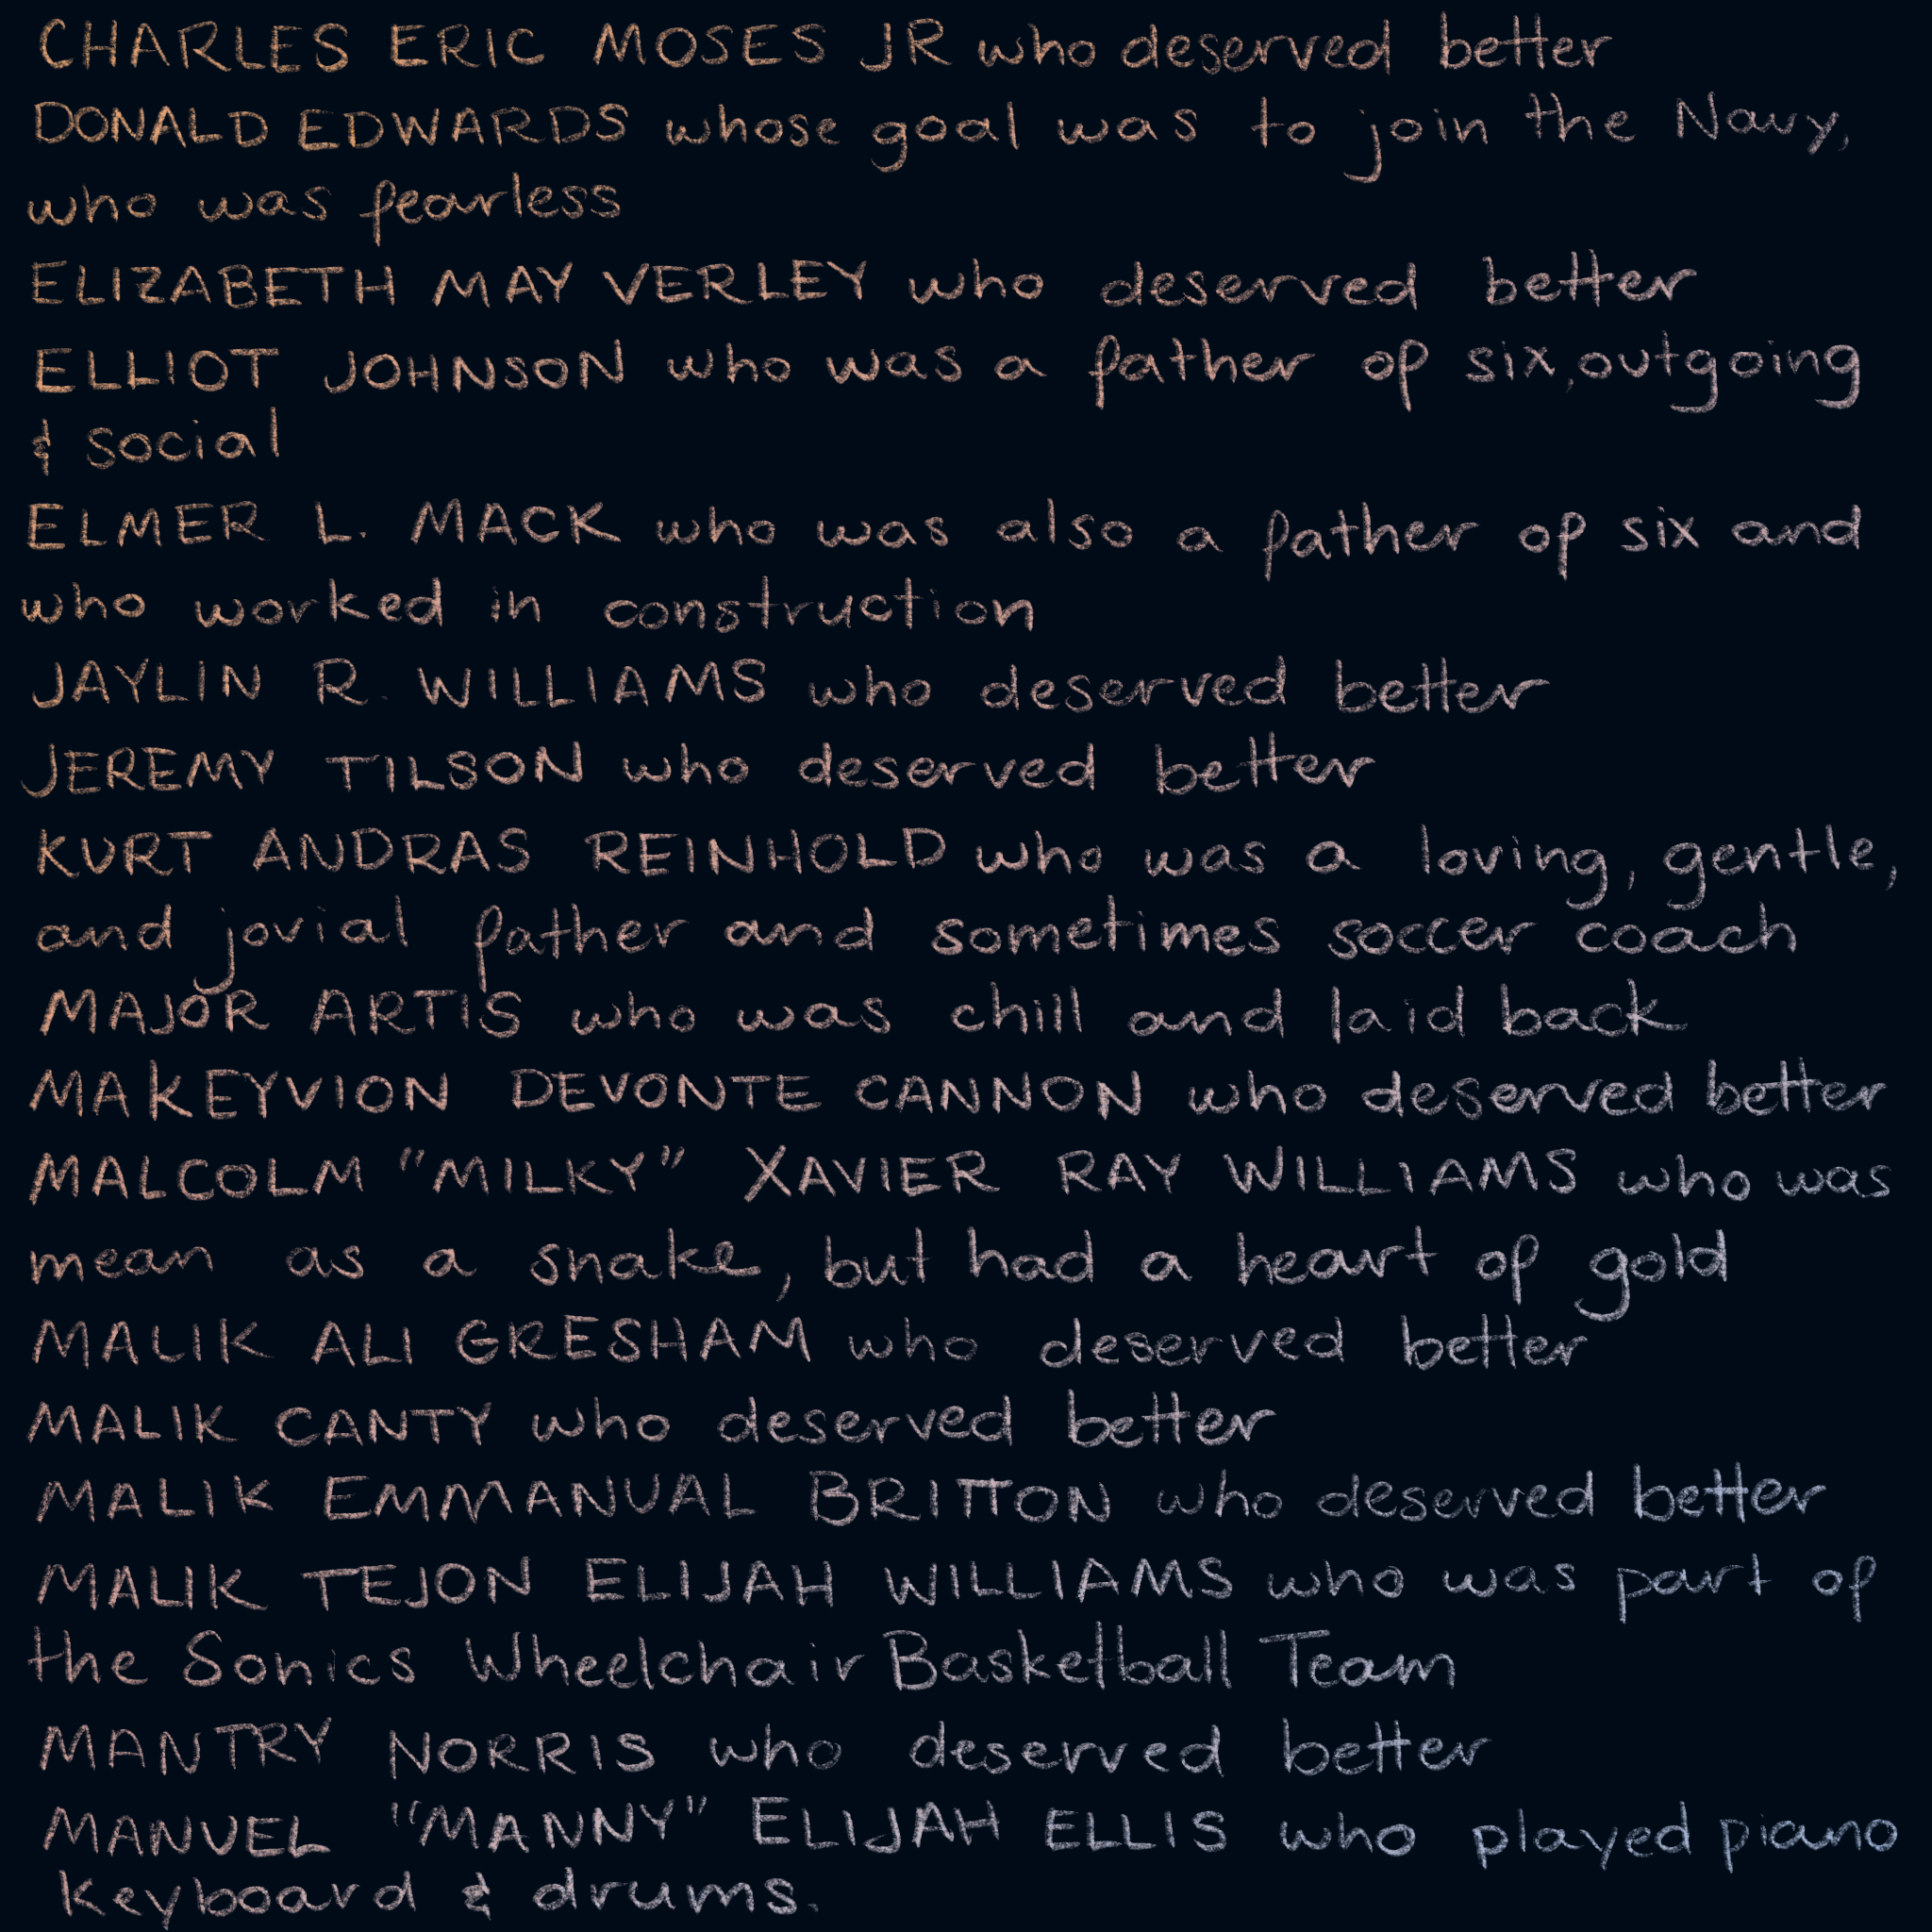 CHARLES ERIC MOSES JR who deserved better
DONALD EDWARDS whose goal was to join the Navy,
who was fearless
ELIZABETH MAY VERLEY who deserved better
ELLIOT JOHNSON who was a father of six, outgoing
& social
ELMER L. MACK who was also a father of six and
who worked in construction
JAYLIN R. WILLIAMS who deserved better
JEREMY TILSON who deserved better
KURT ANDRAS REINHOLD who was a loving, gentle,
and jovial father and sometimes soccer coach
MAJOR ARTIS who was chill and laid back
MAKEYVION DEVONTE CANNON who deserved better
MALCOLM "MILKY" XAVIER RAY WILLIAMS who was
mean as a snake, but had a heart of gold
MALIK ALI GRESHAM who deserved better
MALIK CANTY who deserved better
MALIK EMMANUAL BRITTON who deserved better
MALIK TEJON ELIJAH WILLIAMS who was part of
the Sonics Wheelchair Basketball Team
MANTRY NORRIS who deserved better
MANUEL "MANNY" ELIJAH ELLIS who played piano
keyboard & drums.